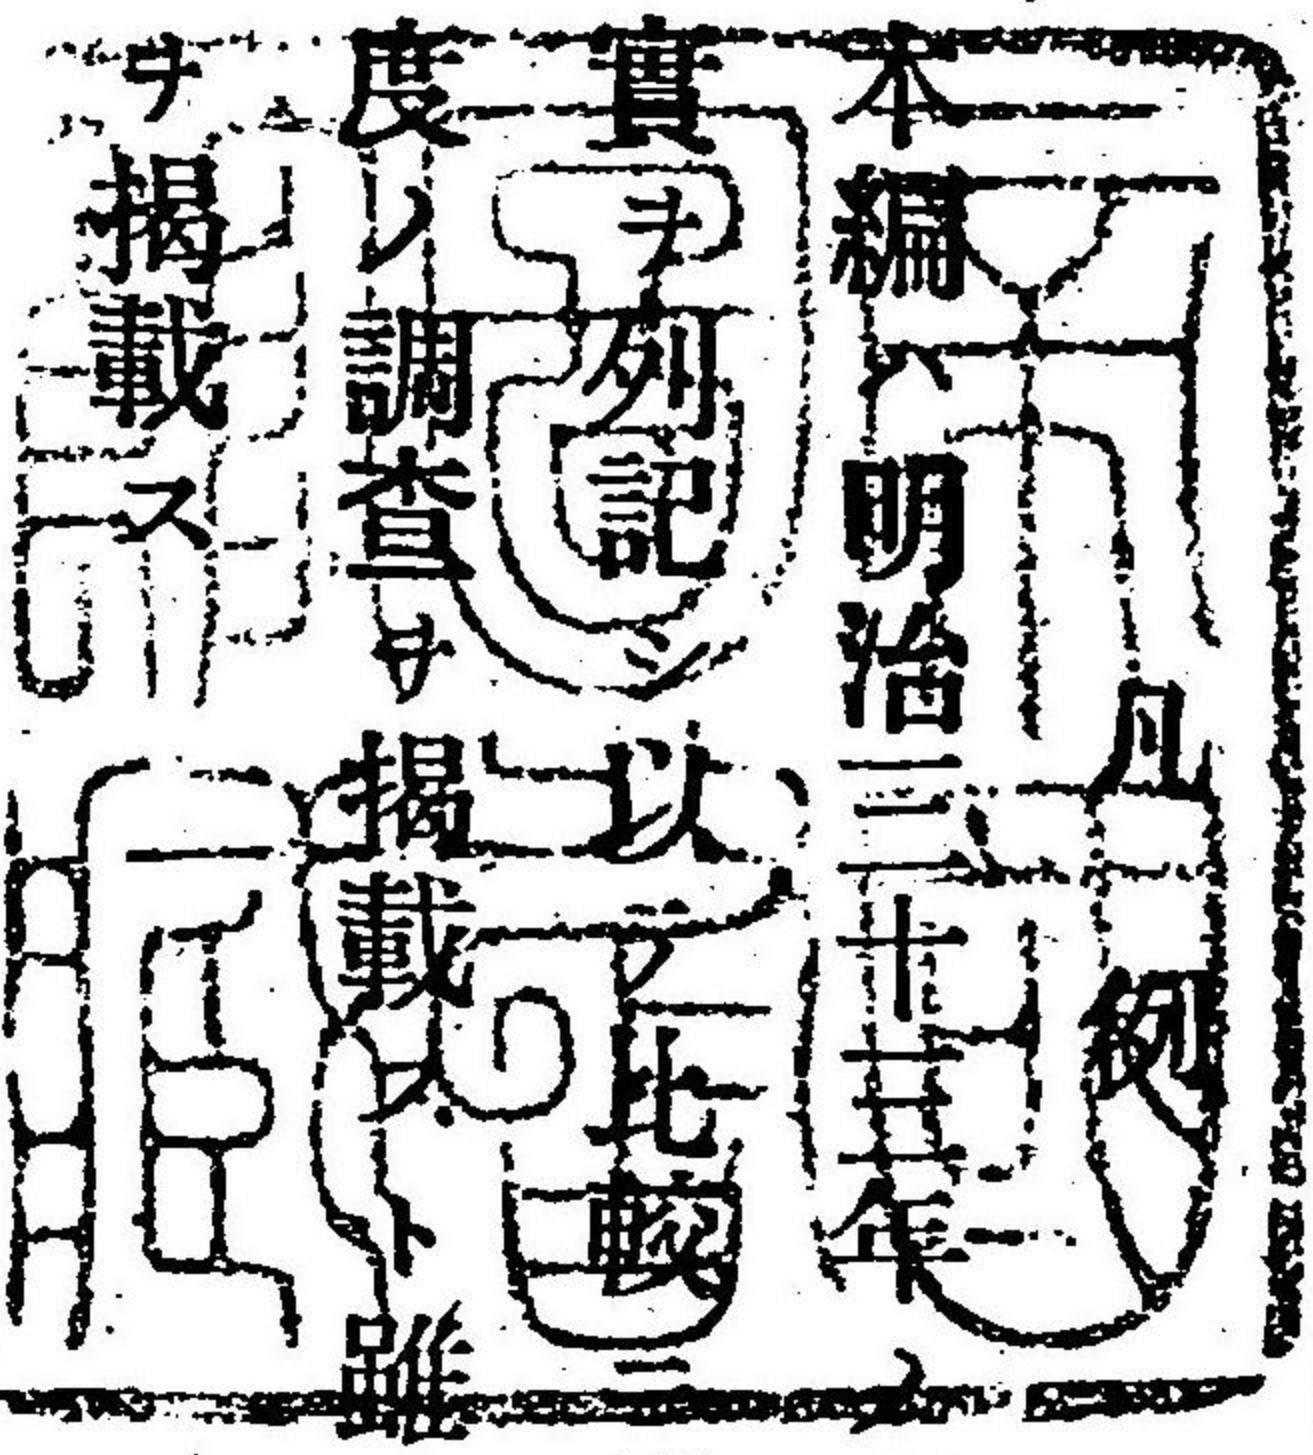 凡例
本編ハ明治三十三年ノ
實ヲ列記シ以テ比較ニ
度ノ調査ヲ掲載スト雖
ヲ掲載ス